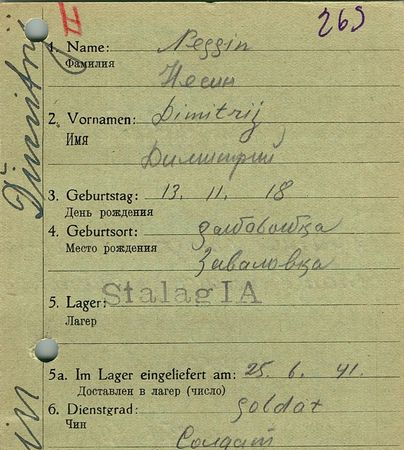 II
265
1. Name: Neggin
Фамилия
Несин
2. Vornamen: Dimitrij
Имя
Димитрий
3. Geburtstag: 13. 11. 18
День рождения
4. Geburtsort:
Место рождения Заваловка
5. Lager: Stalag IA
Лагер
5a. Im Lager eingeliefert am: 25. 6. 41.
Доставлен в лагер (число)
6. Dienstgrad: Soldat
Чин
Солдат
Dimitrij